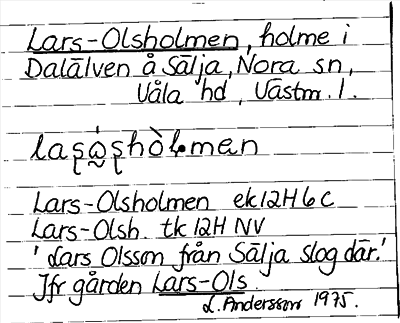 Lars-Olsholmen, holme i
Dalälven å Sälja, Nora sn,
Våla hd, Västm. l.
Lars-Olsholmen ek 12H 6 C
Lars-Olsh. tk 12H NV
'Lars Olsson från Sälja slog där.'
Jfr gården Lars-Ols
L. Andersson 1975.